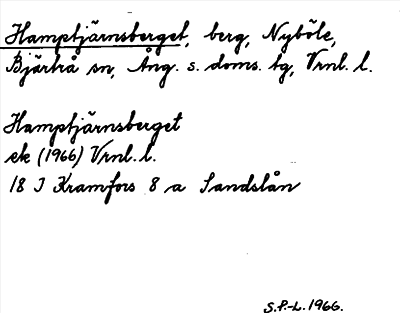 Hamptjärnsberget, berg, Nyböle,
Bjärtrå sn, Ång. s. doms. tg, Vrnl. l.
Hamptjärnsberget
ek (1966) Vrnl. l.
18 I Kramfors 8 a Sandslån
S.P.-L. 1966.